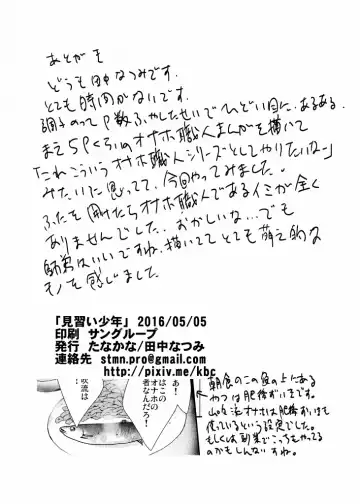 あとがき
どうも田中なつみです。
とても時間がないです。
調子のってP数ふやしたせいでひどい目に、あるある。
まえ5Pくらいのオナホ職人まんがを描いて
「これこういうオナホ職人シリーズとしてやりたいなー」
みたいに思ってて、今回やってみました。
ふたを開けたらオナホ職人であるイミが全く
ありませんでした。おかしいな…でも
師弟はいいですね。描いててとても萌え的な
モノを感じました
「見習い少年」 2016/05/05
印刷 サングループ
発行 たなかな/田中なつみ
連絡先 stmn.pro@gmail.com
http://pixiv.me/kbc
あ!
はこの
オナホの
者なんだろ!
吹流は
朝食のこの魚の上にある
やつは肥後ずいきです。
オナホは肥後ずいきも
使っているという設定でした。
もしくは副業でこっちもやってる
のかもしんないすね。